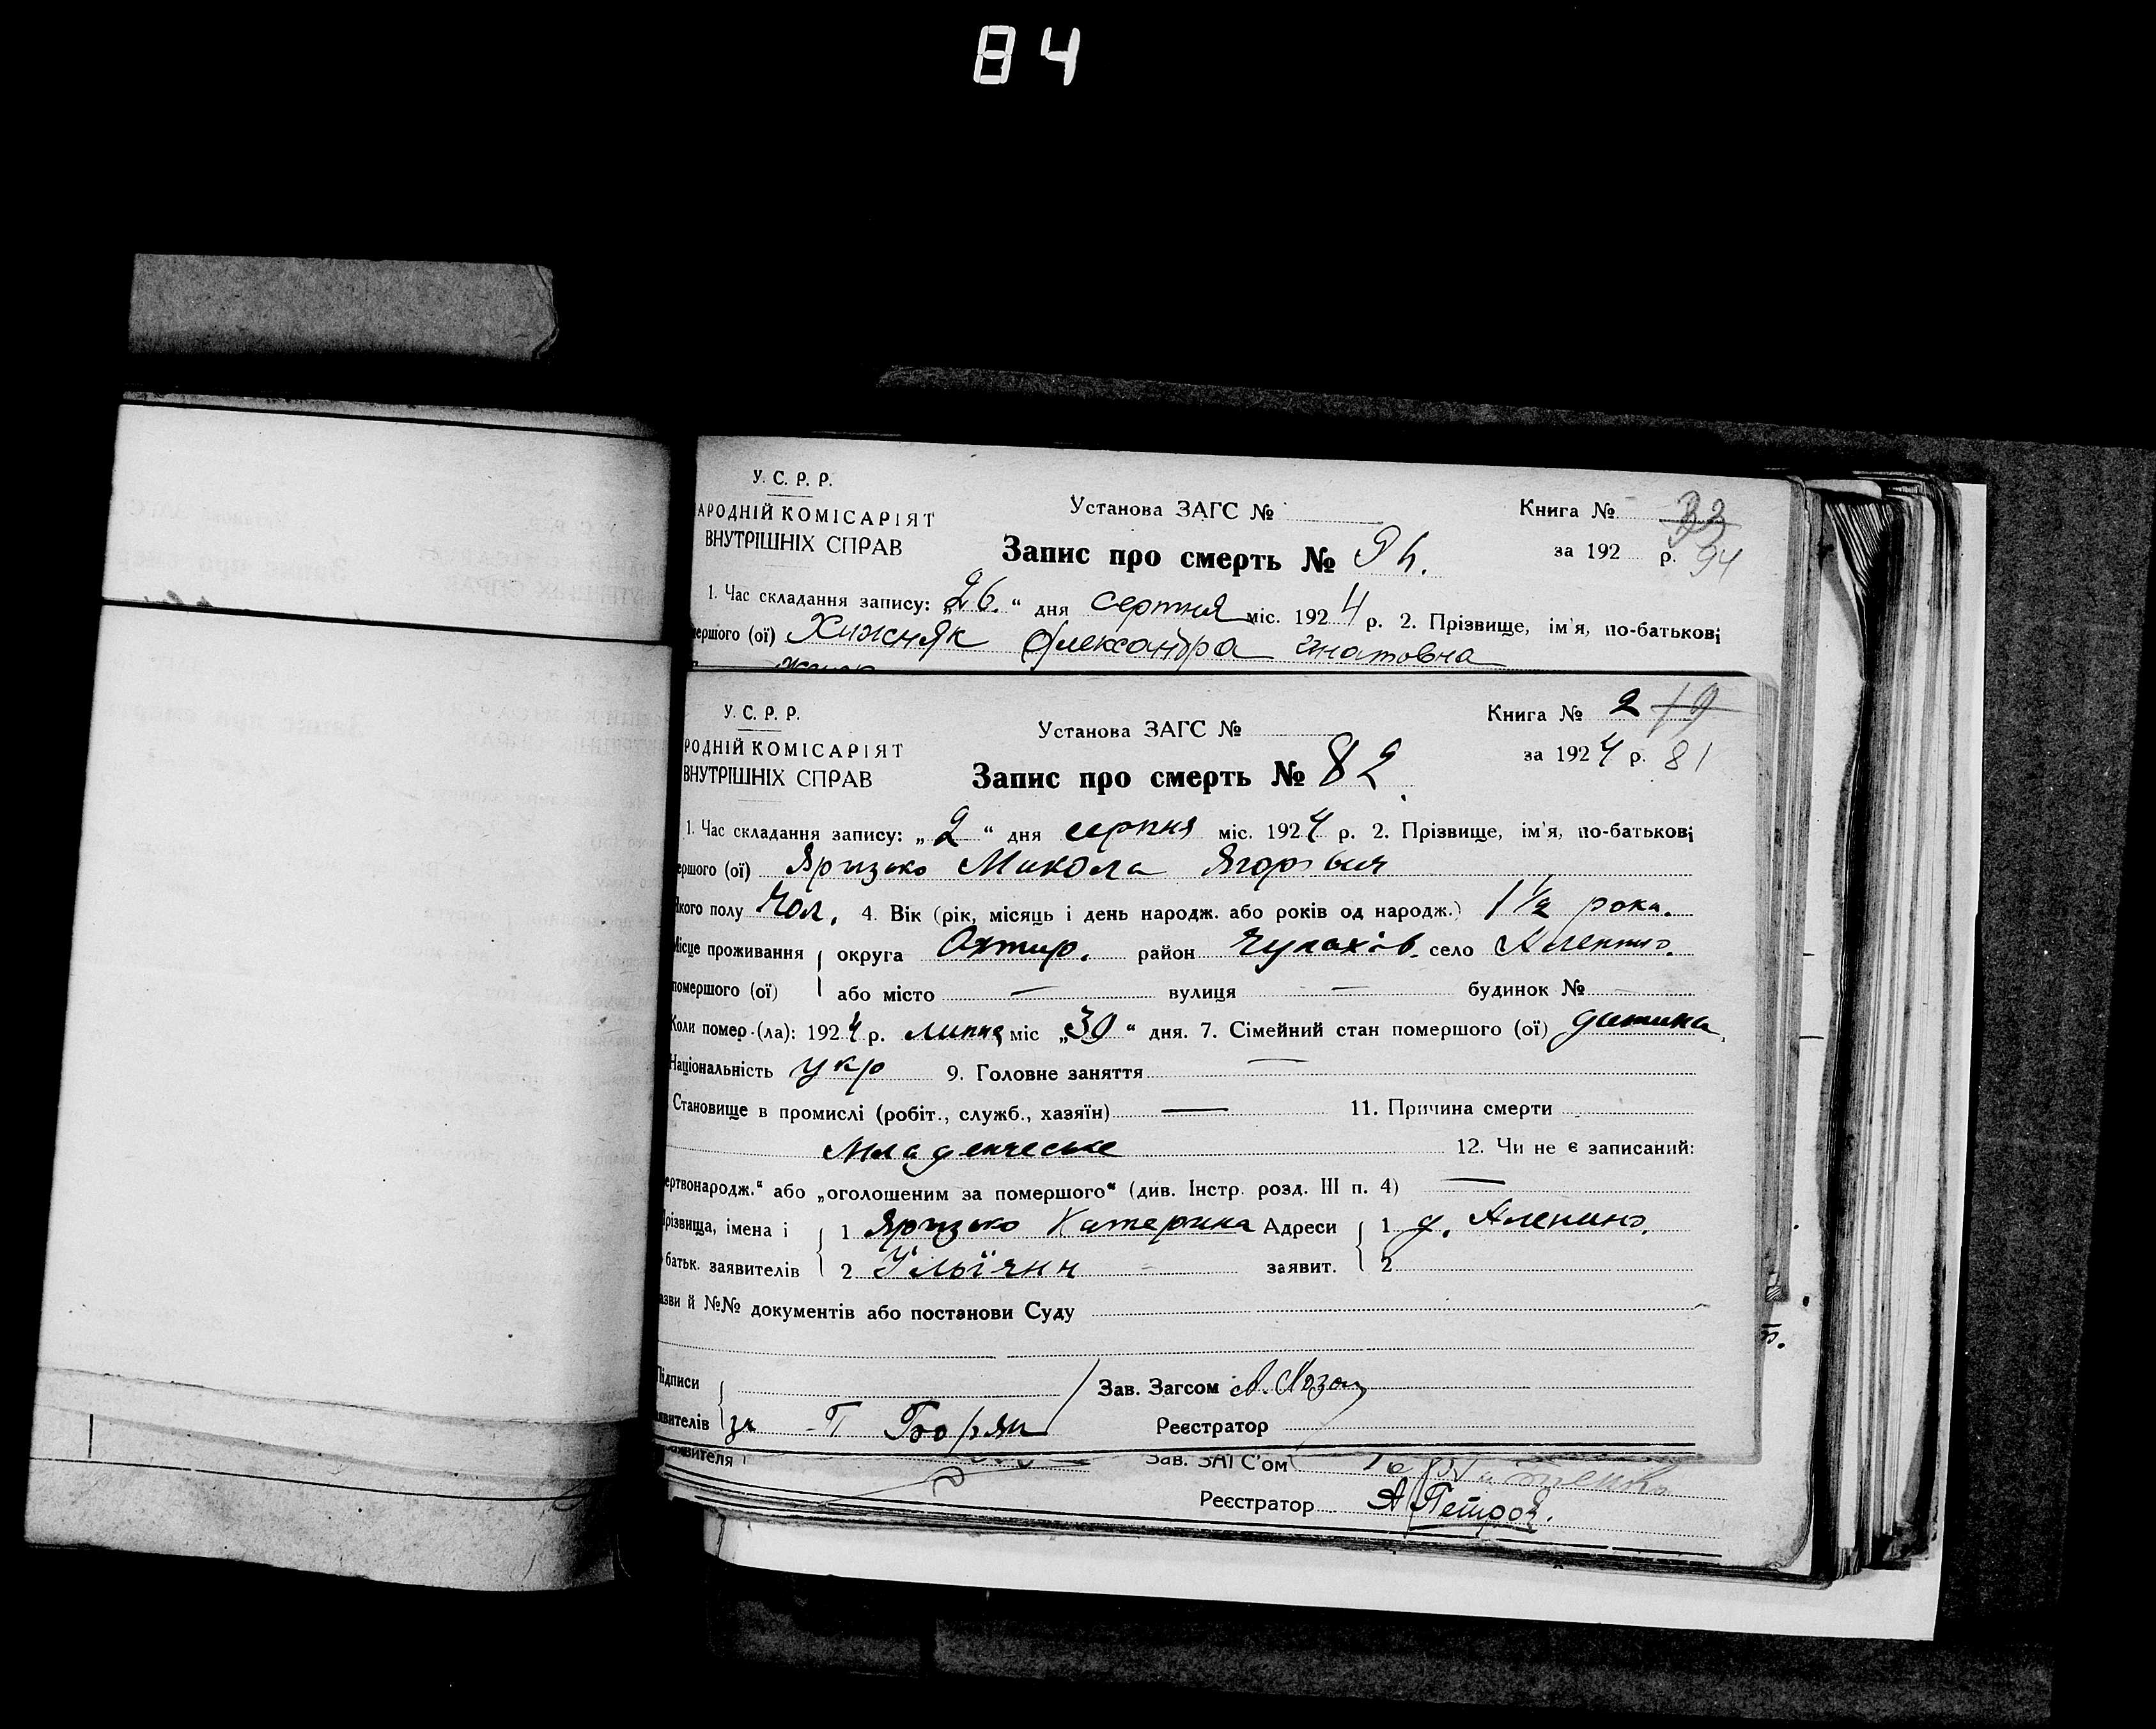 84
У. С. Р. Р.
АРОДНІЙ КОМІСАРІЯТ
ВНУТРІШНІХ СПРАВ
Установа ЗАГС №
Книга № 33
за 192 р. 94
Запис про смерть № 94.
1. Час складання запису: „26.“ дня серпня міс. 1924 р. 2. Прізвище, ім'я, по-батькові
мершого (ої) Хижняк Олександра Гнатовна
У. С. Р. Р.
РОДНІЙ КОМІСАРІЯТ
ВНУТРІШНІХ СПРАВ
Установа ЗАГС №
Книга № 2 19
за 1924 р. 81
Запис про смерть № 82
1. Час складання запису: „2“ дня серпня міс. 1924 р. 2. Прізвище, ім'я, по-батькові
ершого (ої) Микола
Якого полу Чол. 4. Вік (рік, місяць і день народж. або років од народж.) 1 1/2 рока.
Місце проживання округа Охтир. район село
помершого (ої) або місто — вулиця — будинок №
Коли помер (ла): 1924 р. липня міс „30“ дня. 7. Сімейний стан помершого (ої) дитина
Національність укр 9. Головне заняття —
Становище в промислі (робіт., служб., хазяїн) — 11. Причина смерти
Младенческе 12. Чи не є записаний:
ертвонародж.“ або „оголошеним за помершого“ (див. Інстр. розд. III п. 4) —
Прізвища, імена і 1 Катерина Адреси 1
батьк. заявителів 2 Ільїчни заявит. 2
азви й №№ документів або постанови Суду
Підписи Зав. Загсом
аявителів за Реєстратор
аявителя Зав. ЗАГС'ом
Реєстратор А Петров.